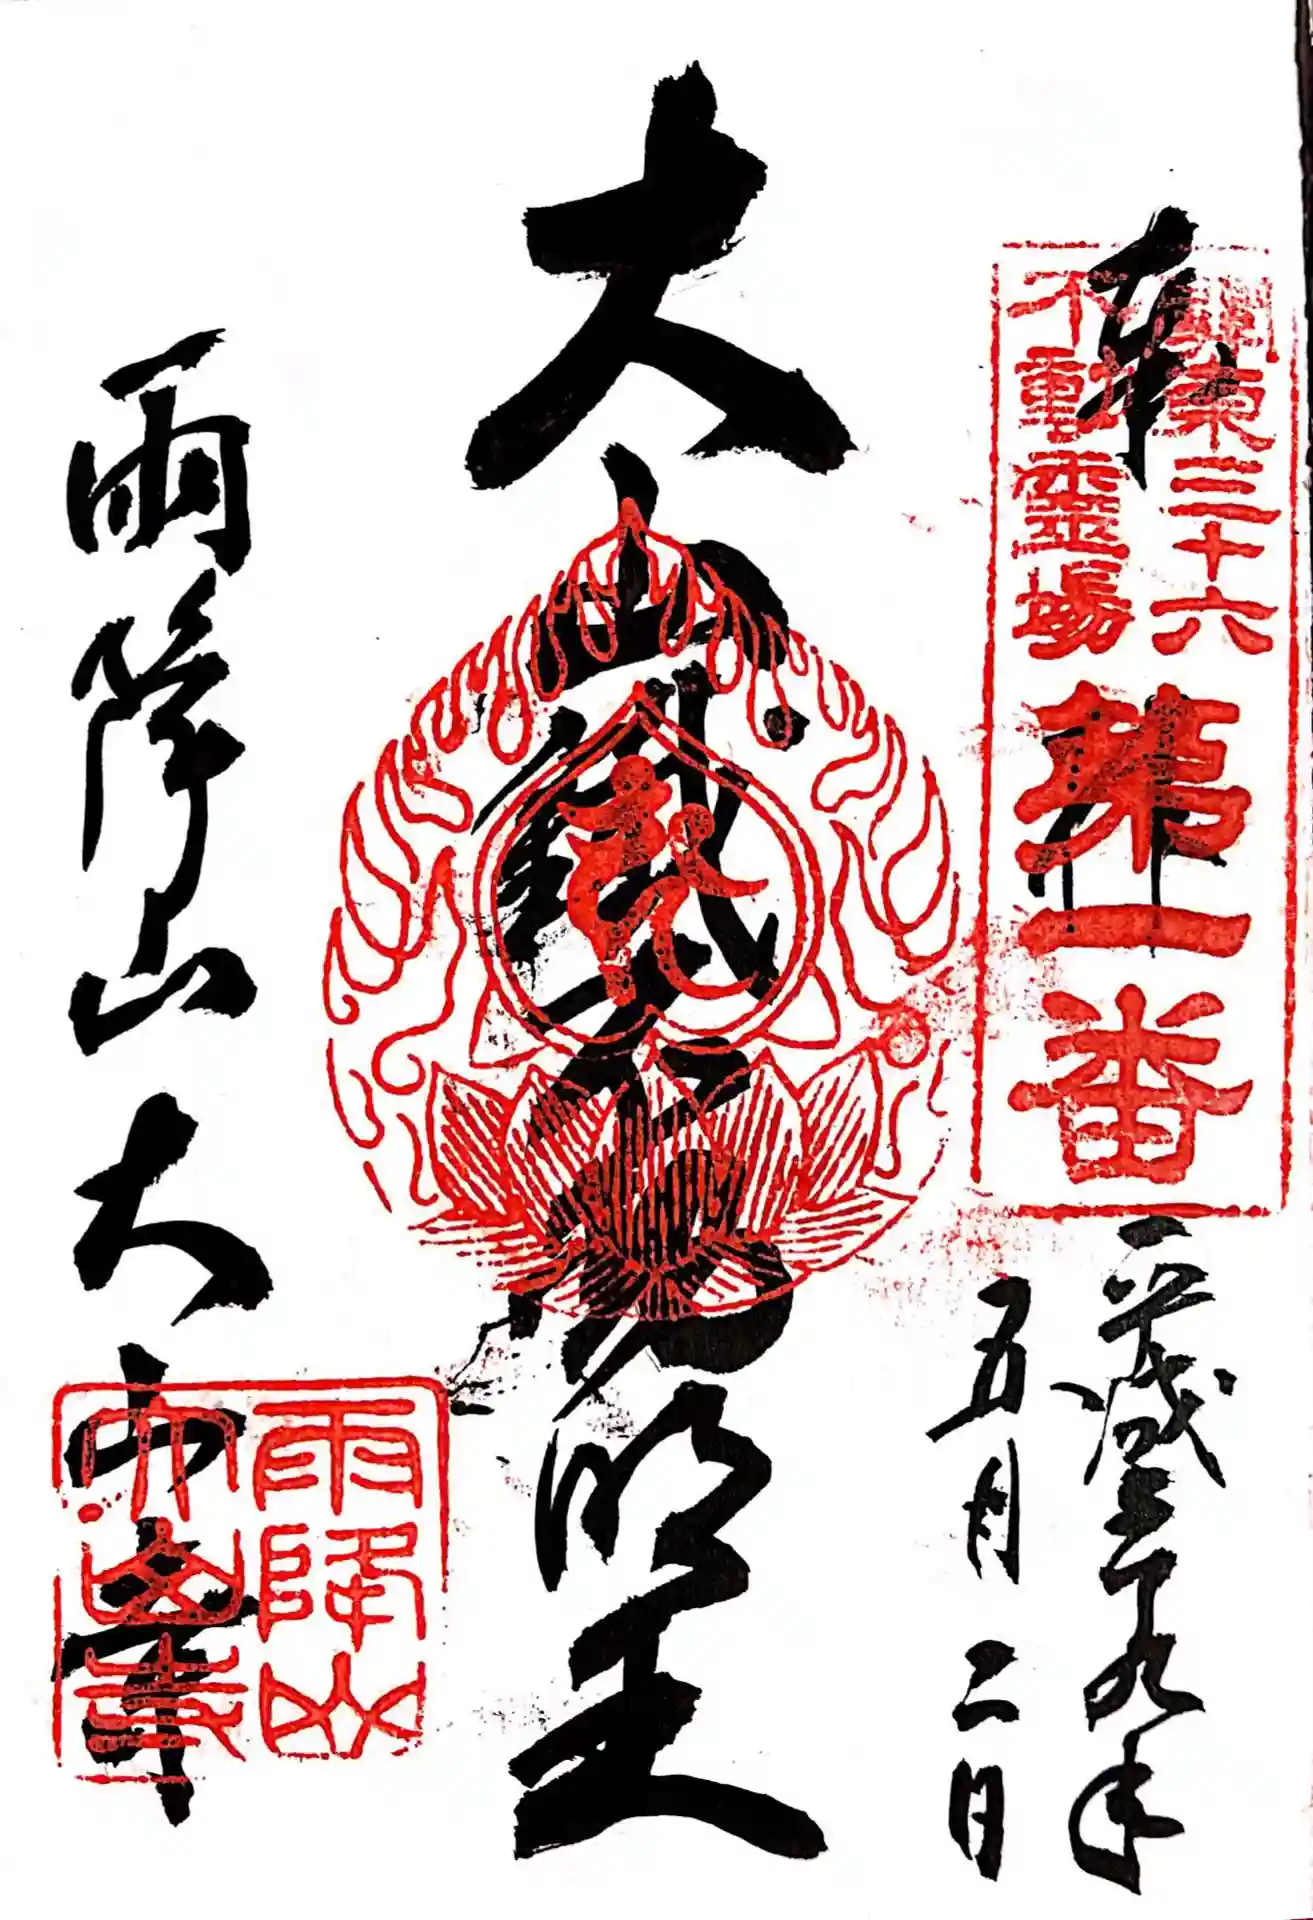 奉拝
關東三十六
不動靈場
第一番
平成二十九年
五月二日
大山鐵不動明王
雨降山大山寺
雨降山
大山寺